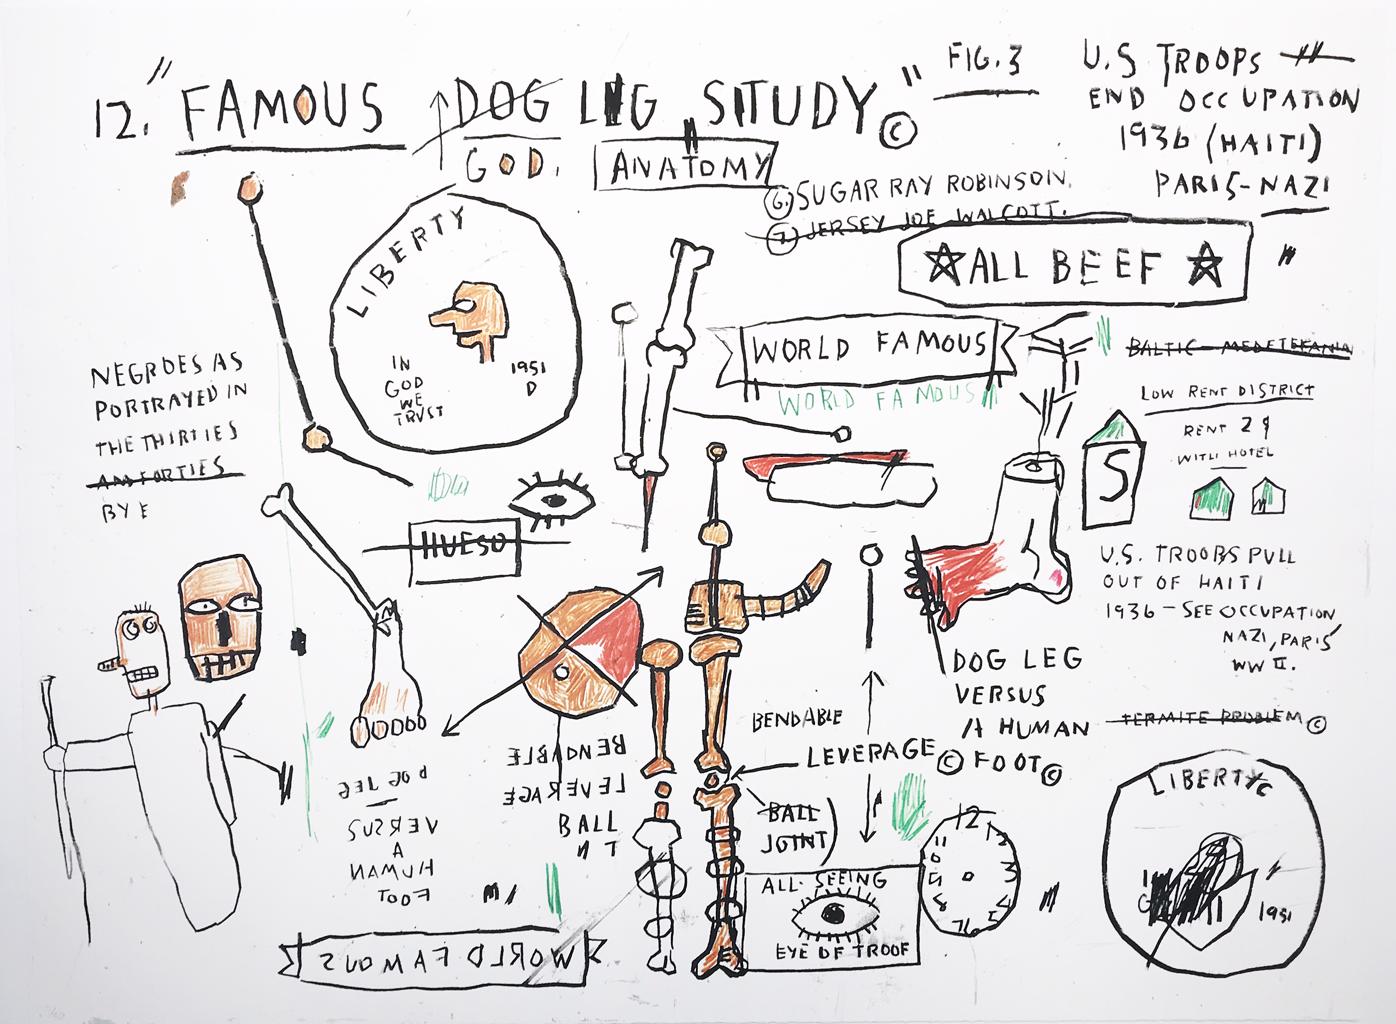 12. "FAMOUS DOG LEG STUDY" ©
GOD.
ANATOMY
FIG. 3
U.S TROOPS
END OCCUPATION
1936 (HAITI)
PARIS-NAZI
6. SUGAR RAY ROBINSON.
7. JERSEY JOE WALCOTT.
ALL BEEF
LIBERTY
IN
GOD
WE
TRVST
1951
D
WORLD FAMOUS
WORLD FAMOUS
BALTIC-MEDETERANIN
LOW RENT DISTRICT
RENT 2
WITH HOTEL
S
NEGROES AS
PORTRAYED IN
THE THIRTIES
AN FORTIES
BY E
HUESO
U.S. TROOPS PULL
OUT OF HAITI
1936 - SEE OCCUPATION
NAZI, PARIS
WW II.
TERMITE PROBLEM ©
DOG LEG
VERSUS
A HUMAN
FOOT ©
BENDABLE
LEVERAGE ©
BALL
JOINT)
BENDABLE
LEVERAGE
BALL
N T
DOG LEG
VERSUS
A
HUMAN
FOOT
ALL-SEEING
EYE OF TROOF
12
LIBERTY
1951
WORLD FAMOUS